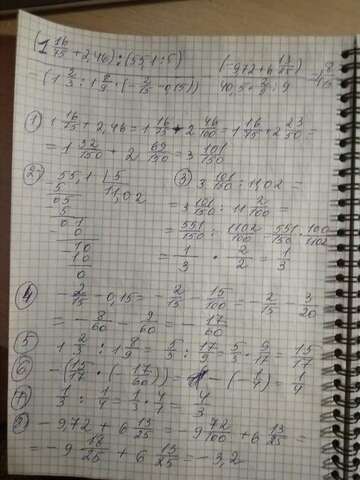 (1 16/75 + 2,46) : (55,1 : 5) (-9,72 + 6 13/25)
(1 2/3 : 1 8/9 · (-2/15 - 0,15)) 40,5 + 2/3 : 9
① 1 16/75 + 2,46 = 1 16/75 + 2 46/100 = 1 16/75 + 2 23/50 =
= 1 32/150 + 2 69/150 = 3 101/150
2) 55,1 | 5 3) 3 101/150 : 11,02 =
5 11,02 = 3 101/150 : 11 2/100 =
05 = 551/150 : 1102/100 = 551/150 · 100/1102
5 = 1/3 · 2/2 = 1/3
01
0
10
10
0
④ -2/15 - 0,15 = -2/15 - 15/100 = -2/15 - 3/20
= -8/60 - 9/60 = -17/60
⑤ 1 2/3 : 1 8/9 = 5/3 : 17/9 = 5/3 · 9/17 = 15/17
⑥ -(15/17 · (-17/60)) = -(-1/4) = 1/4
⑦ 1/3 : 1/4 = 1/3 · 4/1 = 4/3
⑧ -9,72 + 6 13/25 = -9 72/100 + 6 13/25 =
= -9 18/25 + 6 13/25 = -3,2